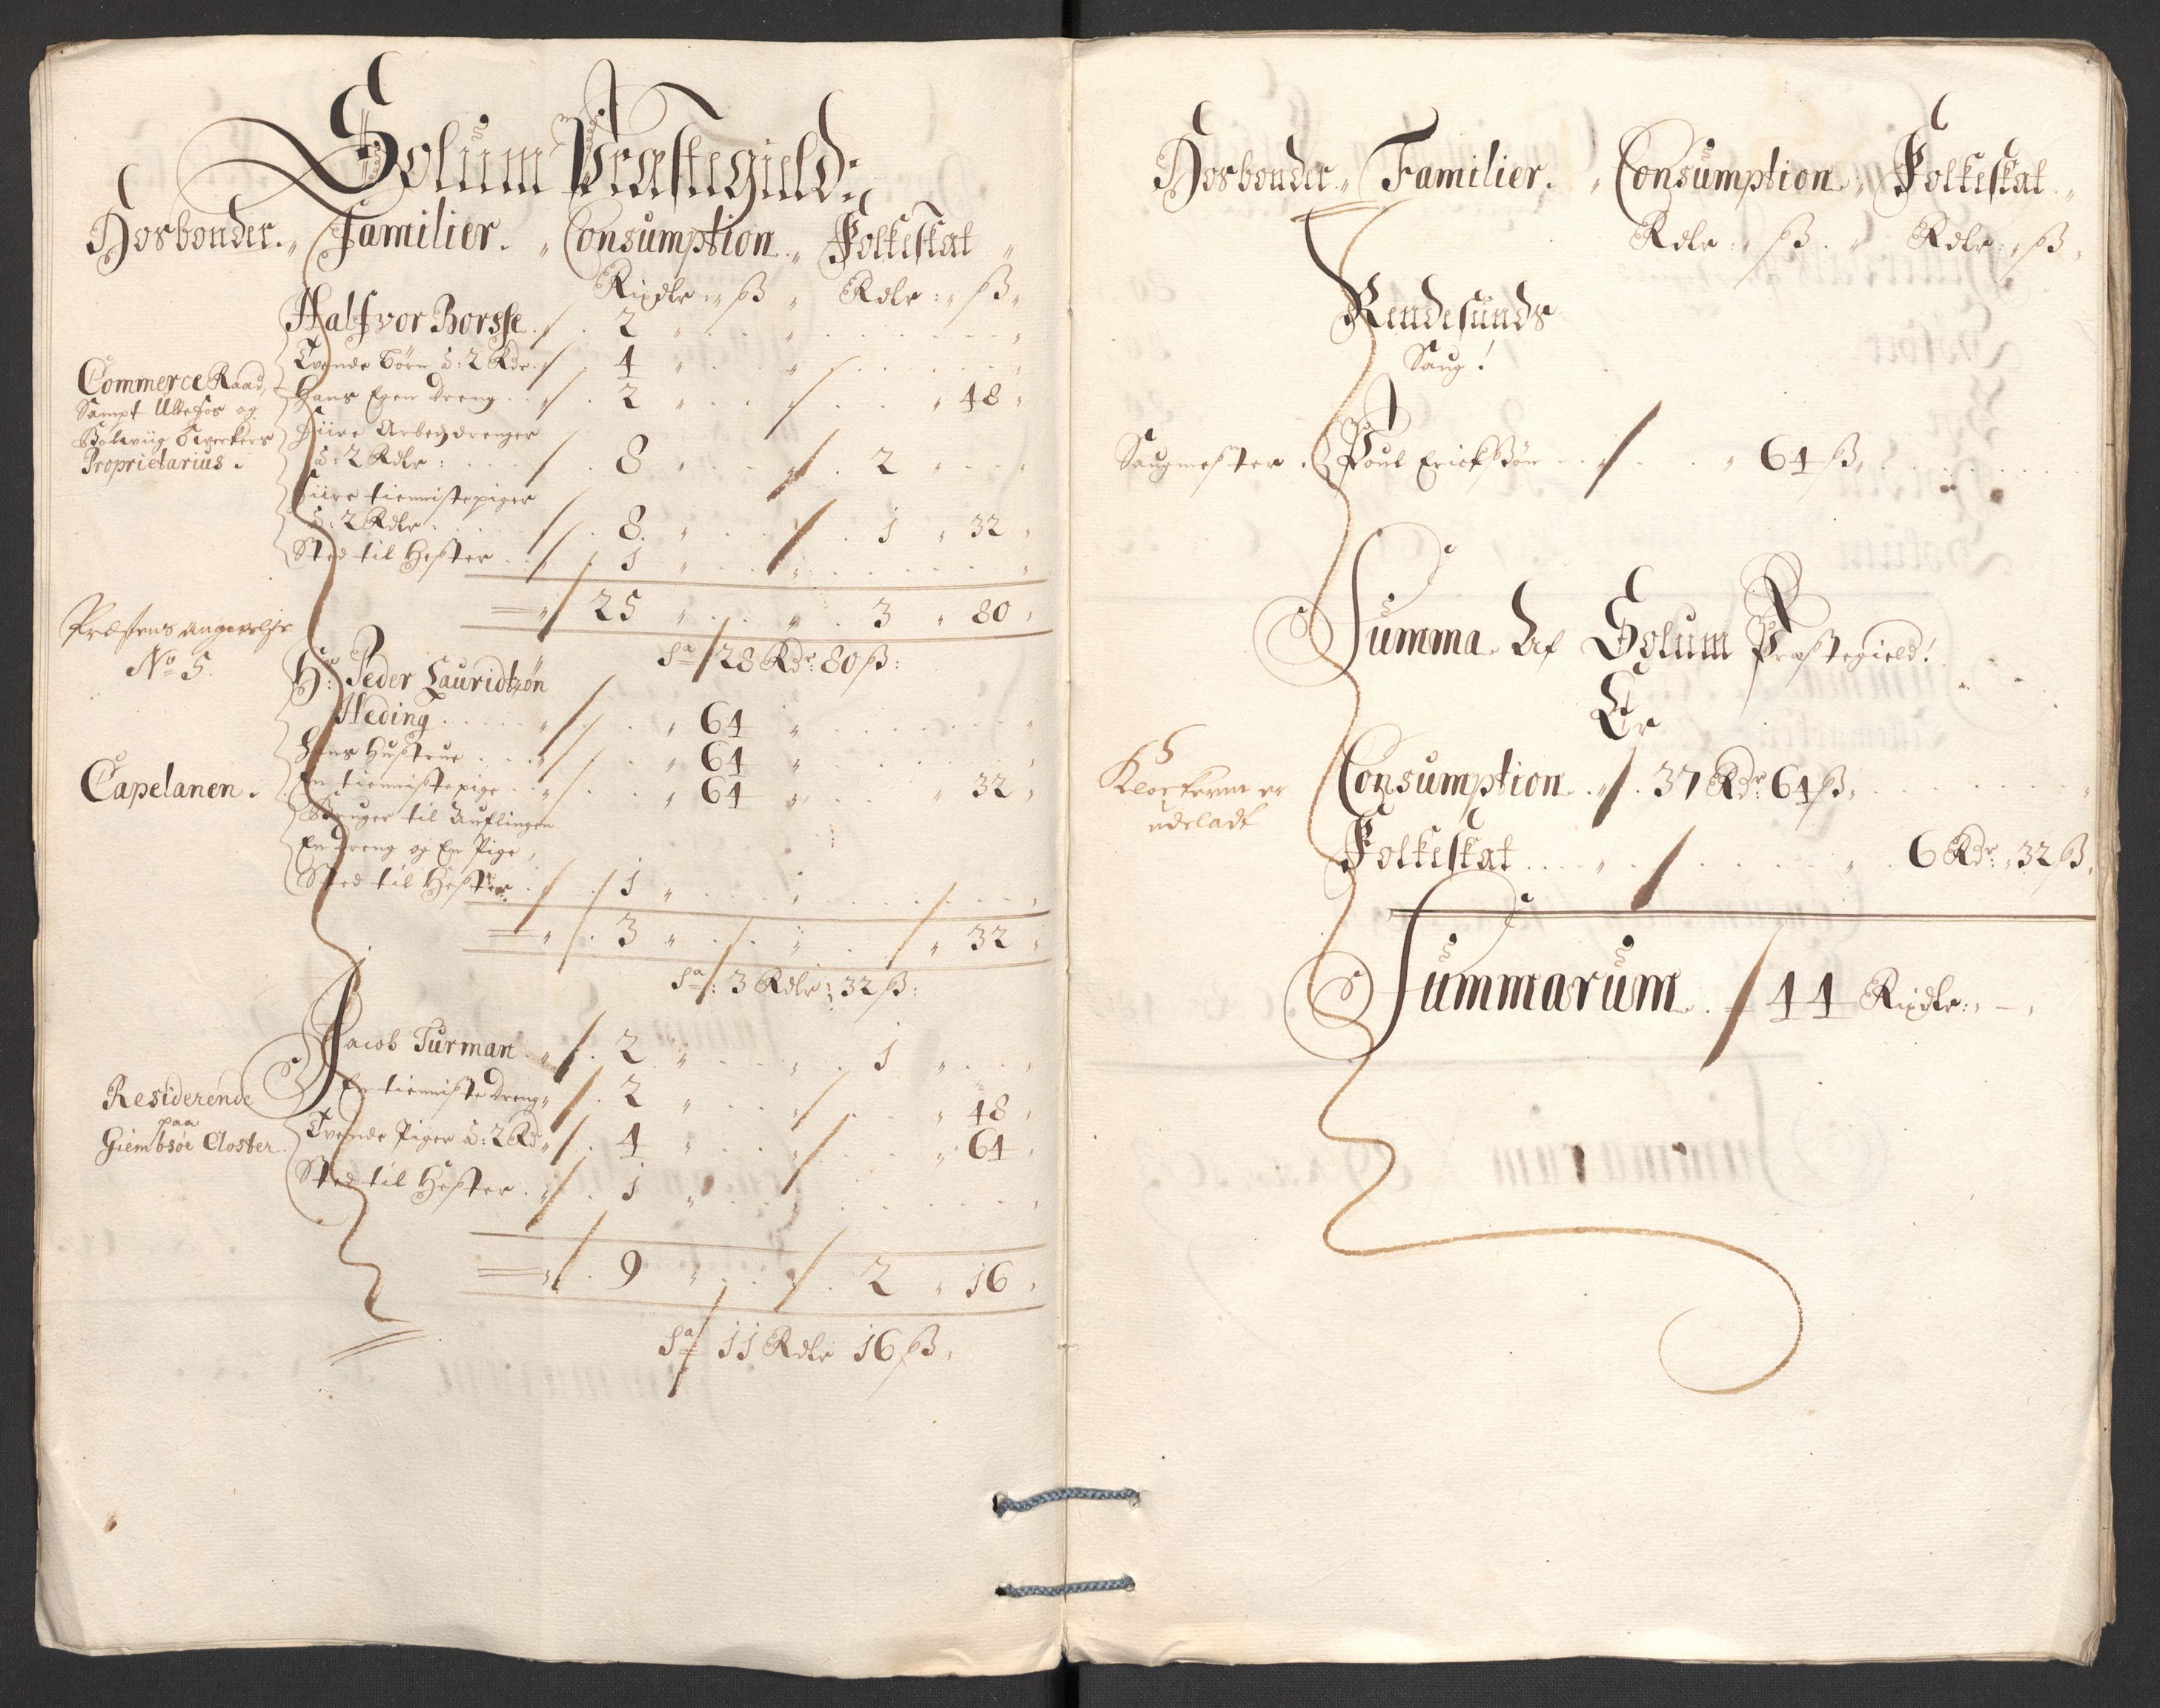 Solum Præstegield:
Hosbonder. Familier. Consumption. Folkeskat
Rixdlr: ß Rdlr: ß
Halfvor Borsse 2
Tvende Børn à: 2 Rdr. 4
Commerce Raad,
Sampt Ullefos og
Bolviig Verckers
Proprietarius.
Hans Egen Dreng 2 48
Fiire Arbeydzdrenger
à: 2 Rdlr: 8 2
Fiire tiennistepiger
à: 2 Rdlr: 8 1 32
Sted til Hester 1
25 3 80
Sa 28 Rdr: 80 ß:
Præstens angivelse
No 5.
Hr: Peder Lauridtzøn
Heding 64
Hans Hustrue 64
Capelanen.
En tiennistepige 64 32
Bruger til Auflingen
En Dreng og En Pige,
Sted til Hester 1
3 32
Sa: 3 Rdlr: 32 ß:
Jacob Turman 2 1
Residerende
paa
Giembsøe Closter.
En tienniste Dreng 2 48
Tvende Piger à: 2 Rd 4 64
Sted til Hester 1
9 2 16
Sa 11 Rdlr 16 ß,
Hosbonder. Familier. Consumption. Folkeskat
Rdlr: ß. Rdlr: ß
Rendesunds
Saug!
Saugmester. Poul Erichsøn 64 ß,
Summa Af Solum Præstegield!
Er
Klockeren er
udeladt
Consumption 37 Rdr: 64 ß,
Folkeskat 6 Rdr: 32 ß,
Summarum 44 Rixdlr: